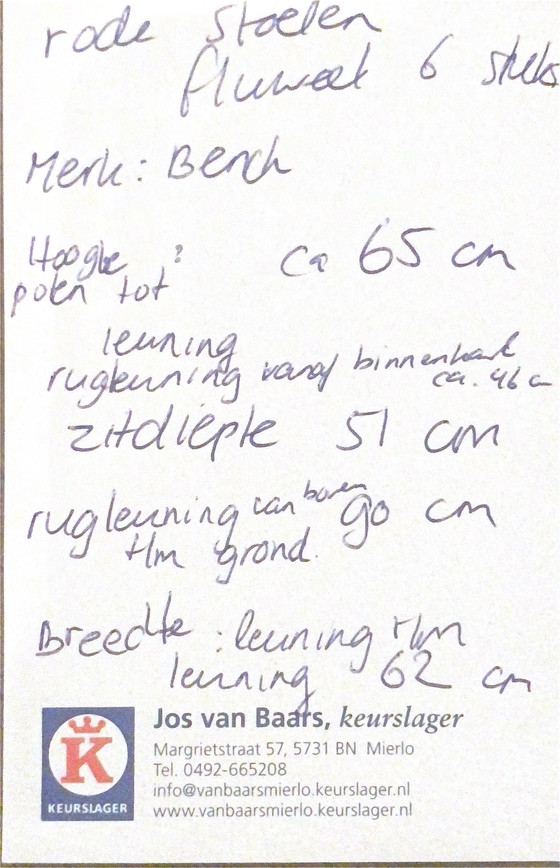 rode stoelen
fluweel 6 stuks
Merk: Bench
Hoogte : ca 65 cm
poten tot
leuning
rugleuning vanaf binnenkant
ca. 46 cm
zitdiepte 51 cm
rugleuning van boven 90 cm
t/m grond.
Breedte : leuning t/m
leuning 62 cm
K
KEURSLAGER
Jos van Baars, keurslager
Margrietstraat 57, 5731 BN Mierlo
Tel. 0492-665208
info@vanbaarsmierlo.keurslager.nl
www.vanbaarsmierlo.keurslager.nl